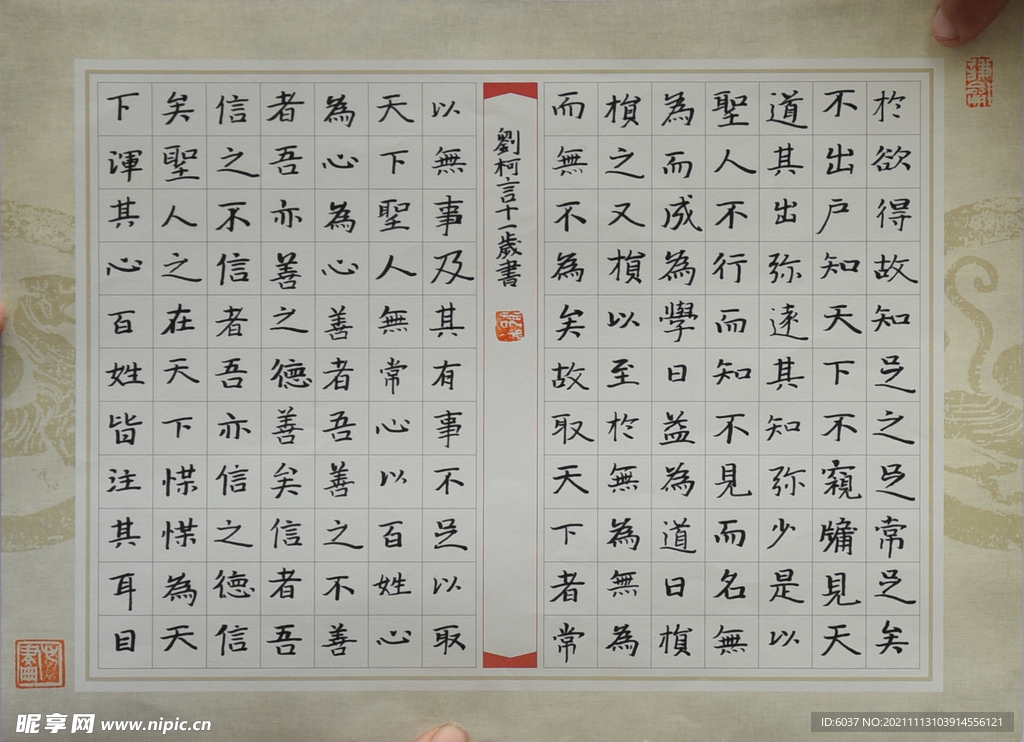 於欲得故知足之足常足矣
不出户知天下不窺牖見天
道其出弥遠其知弥少是以
聖人不行而知不見而名無
為而成為學日益為道日損
損之又損以至於無為無為
而無不為矣故取天下者常
劉柯言十一歲書
以無事及其有事不足以取
天下聖人無常心以百姓心
為心為心善者吾善之不善
者吾亦善之德善矣信者吾
信之不信者吾亦信之德信
矣聖人之在天下惵惵為天
下渾其心百姓皆注其耳目
昵享网 www.nipic.cn
ID:6037 NO:20211113103914556121